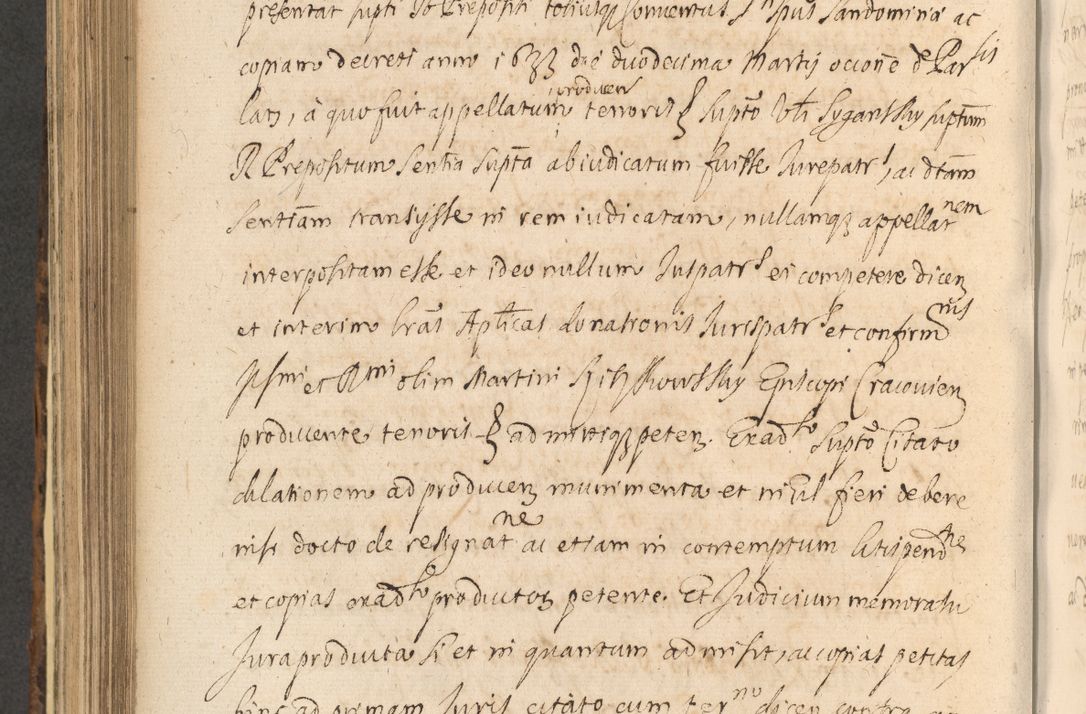 presentat supti Dò Prepositi totiusq Conventus S Spùs Sandominia ac
copiam decreti anno 1633 die duodecima Martij occone d Par lis
latz, à quo fuit appellatum producen tenoris supto Vbi Sygantsky suptum
R Prepositum Sentia supta abiudicatum fuisse Iurepatr, ac dtam
sentiam transijsse in rem iudicatam, nullamq appellat nem
interpositam esse et ideo nullum Iuspatr ei competere dicen
et interim lras Aplicas donationis Iurispatr et confirm nis
Illsmi et Rmi olim Martini Szyszkowsky Episcopi Cracovien
producente tenoris admittiq peten. Exad so supto Citato
dilationem ad producen munimenta et nihil fieri debere
nisi docto de resignat ne ac etiam in contemptum litispend tie
et copias exad so productoz petente. Et Iudicium memoratu
Iura producta si et in quantum admisit, ac copias petitas
hinc ad primam Iuris citato cum ter no dicen contra